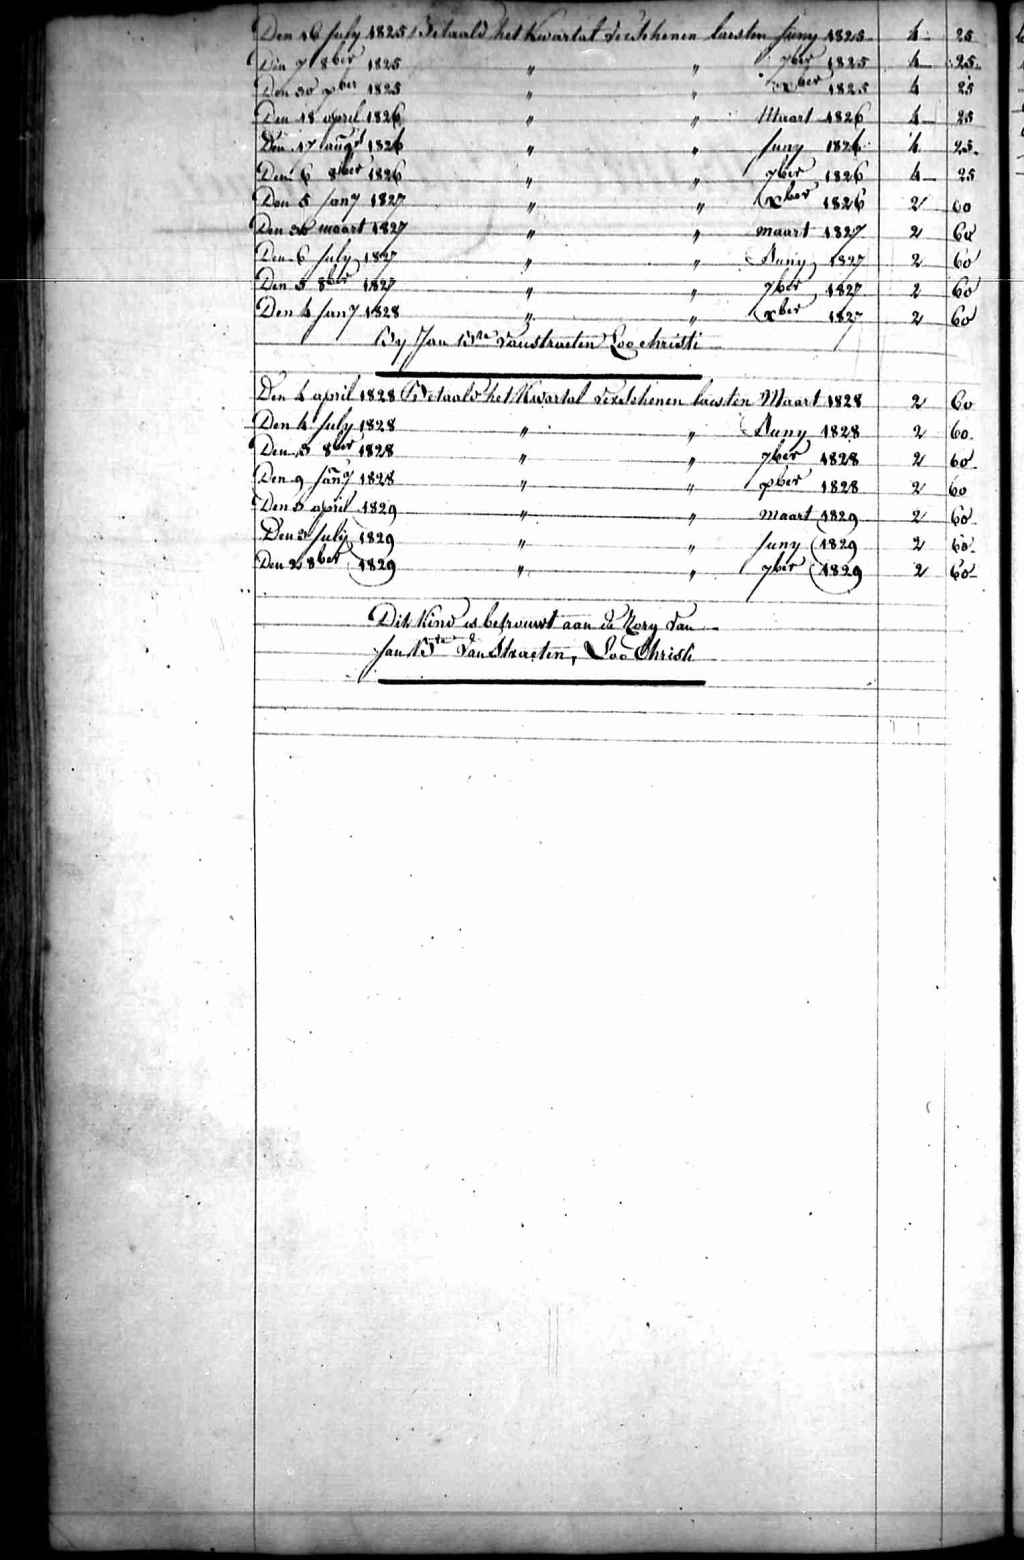 Den 16 july 1825 Betaald het Kwartal verschenen laesten Juny 1825 4 25
Den 7 8ber 1825 " " 7ber 1825 4 25
Den 30 xber 1825 " " xber 1825 4 25
Den 18 april 1826 " " Maart 1826 4 25
Den 17 augt 1826 " " Juny 1826 4 25
Den 6 8ber 1826 " " 7ber 1826 4 25
Den 5 Jany 1827 " " xber 1826 2 60
Den 30 maart 1827 " " maart 1827 2 60
Den 6 july 1827 " " Juny 1827 2 60
Den 5 8ber 1827 " " 7ber 1827 2 60
Den 4 Jany 1828 " " xber 1827 2 60
By Jan Bte Vanstraeten Loochristi
Den 4 april 1828 Betaald het Kwartal verschenen laesten Maart 1828 2 60
Den 4 July 1828 " " Juny 1828 2 60
Den 3 8ber 1828 " " 7ber 1828 2 60
Den 9 Jany 1828 " " xber 1828 2 60
Den 3 april 1829 " " maart 1829 2 60
Den 2 July 1829 " " Juny 1829 2 60
Den 2 8ber 1829 " " 7ber 1829 2 60
Dit Kind is betrouwt aan de Zorg van
Jan Bte VanStraeten, Loo Christi